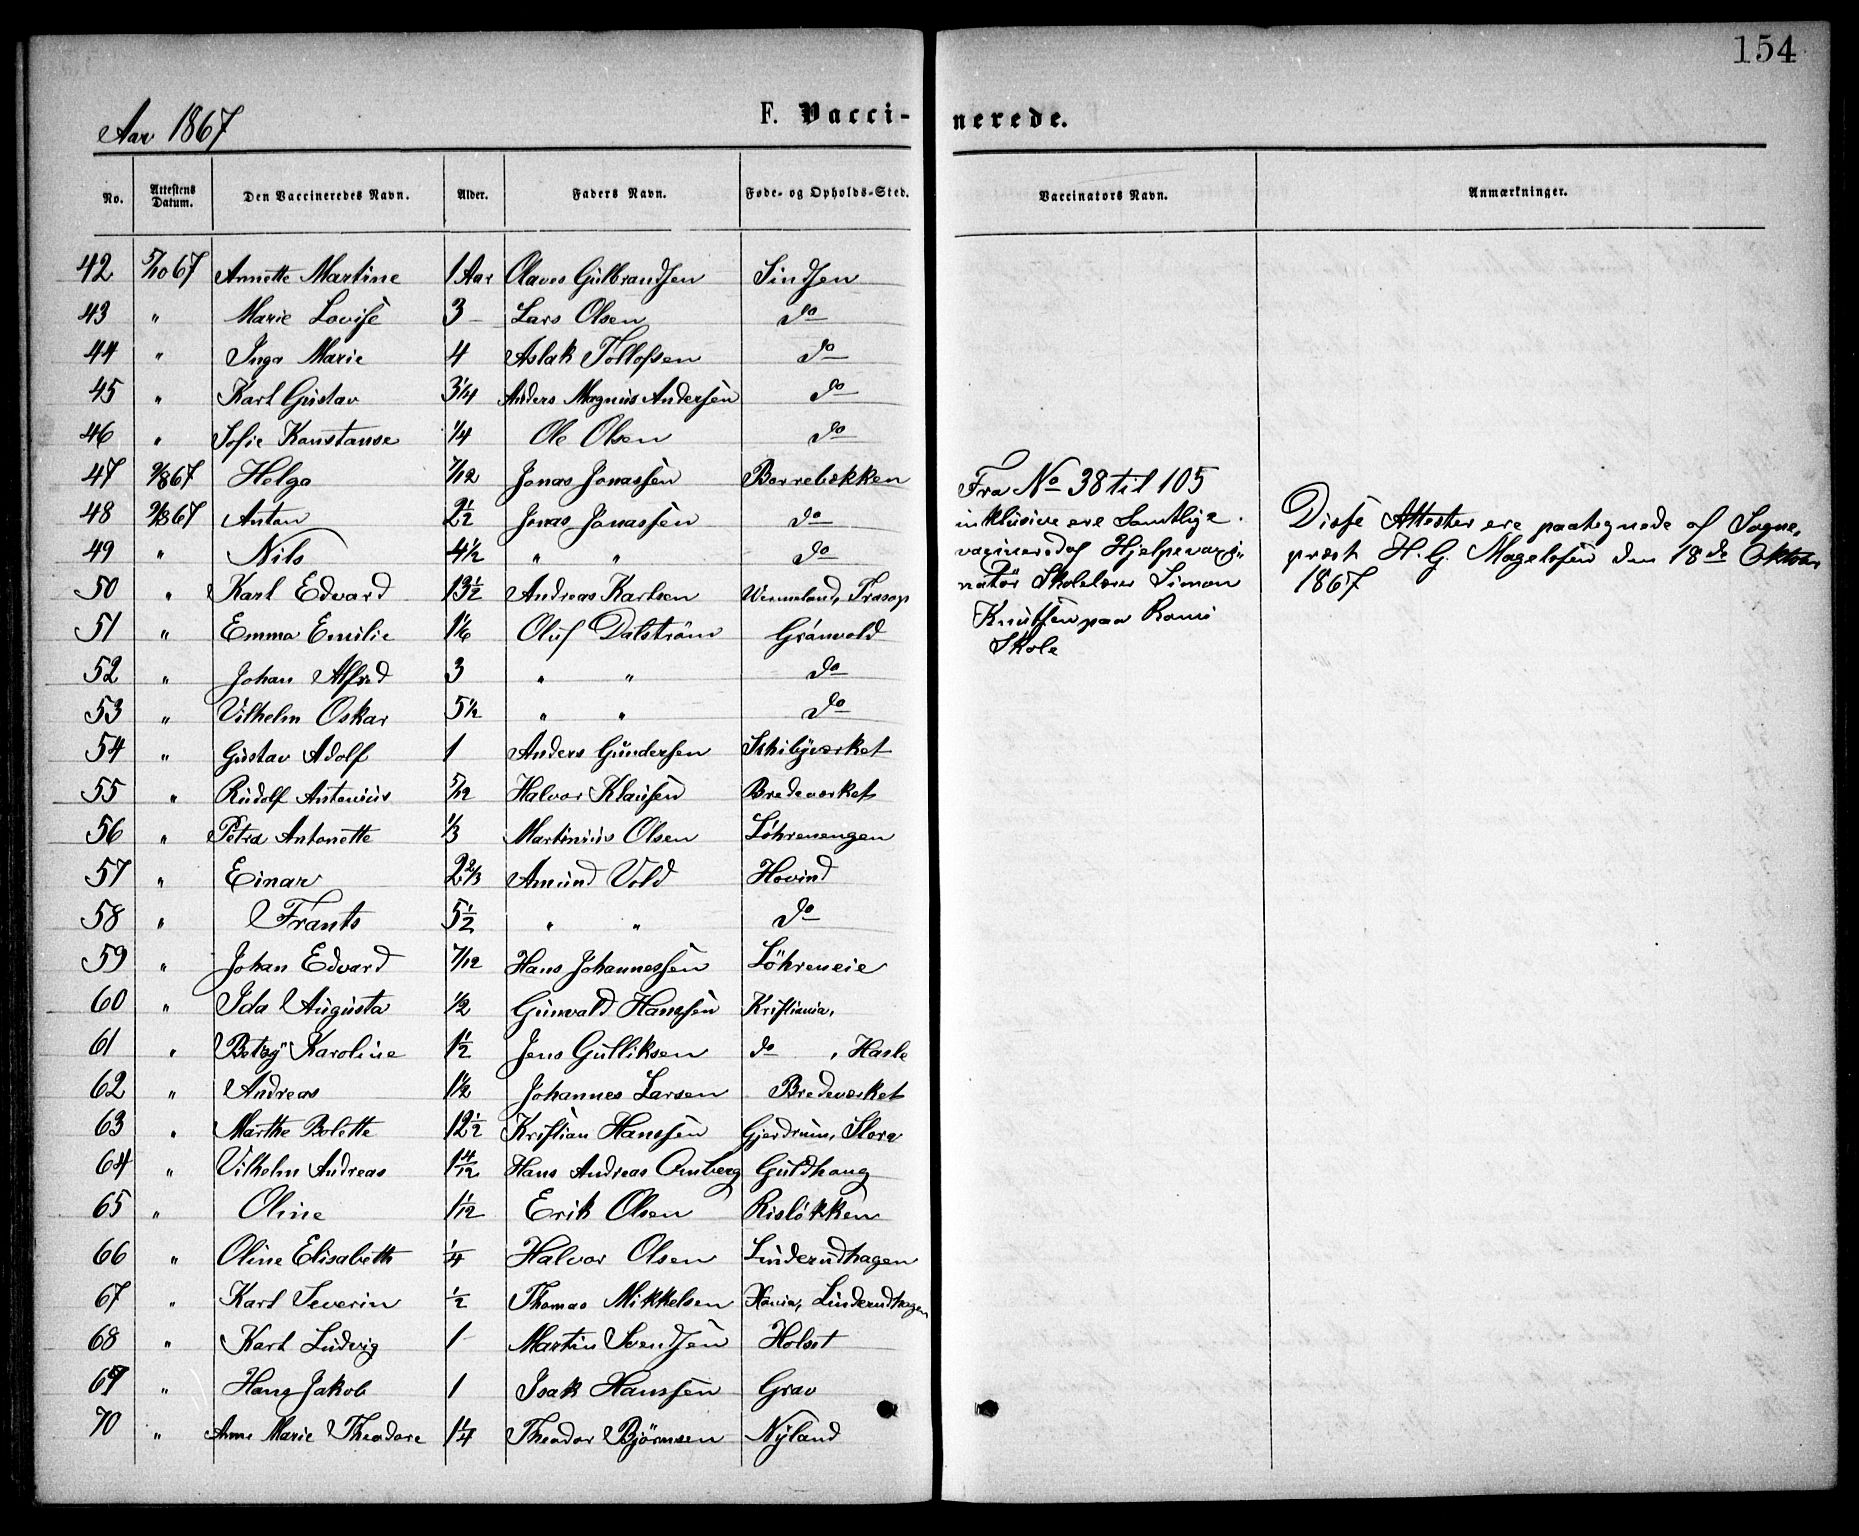 154
Aar 1867
F. Vacci-nerede.
No. Attestens Datum. Den Vaccineredes Navn. Alder. Faders Navn. Føde- og Opholds-Sted. Vaccinators Navn. Anmærkninger.
42 5/10 67 Annette Martine 1 Aar Olaves Gulbrandsen Sindsen
43 " Marie Lovise 3 Lars Olsen do
44 " Inga Marie 4 Aslak Tollofsen do
45 " Karl Gustav 3 1/4 Anders Magnus Andersen do
46 " Sofie Konstanse 1/4 Ole Olsen do
47 9/8 67 Helga 7/12 Jonas Jonassen Borrebækken
48 9/8 67 Anton 2 1/2 Jonas Jonassen do
49 " Nils 4 1/2 " " do
50 " Karl Edvard 13 1/2 Andreas Karlsen Vermeland, Trosop
51 " Emma Emilie 1 1/6 Oluf Dalstrøm Grønvold
52 " Johan Alfred 3 " " do
53 " Vilhelm Oskar 5 1/2 " " do
54 " Gustav Adolf 1 Anders Gundersen Schibyværket
55 " Rudolf Antonius 5/12 Halvor Klausen Bredeværket
56 " Petra Antonette 1/3 Martinius Olsen Løhrenengen
57 " Einar 2 2/3 Amund Vold Hovind
58 " Frants 5 1/2 " " do
59 " Johan Edvard 7/12 Hans Johannessen Löhreneie
60 " Ida Augusta 1/2 Gunvald Hanssen Kristiania,
61 " Betsy Karoline 1 1/2 Jens Gulliksen do , Hasle
62 " Andreas 1 1/2 Johannes Larsen Bredeværket
63 " Marthe Bolette 12 1/2 Kristian Hanssen Gjerdrum, Flora
64 " Vilhelm Andreas 1 4/12 Hans Andreas Omberg Guldhaug
65 " Oline 1 1/12 Erik Olsen Risløkken
66 " Oline Elisabeth 1/4 Halvor Olsen Linderudhagen
67 " Karl Severin 1/2 Thomas Mikkelsen Xania, Linderudhagen
68 " Karl Ludvig 1 Martin Svendsen Holset
69 " Hans Jakob 1 Isak Hanssen Grav
70 " Anne Marie Theodore 1 1/4 Theodor Björnsen Nyland
Fra No 38 til 105
inklusive ere Samtlige
vaccineredaf Hjelpevacci-
natør Skolelærer Simon
Knutsen paa Romi
Skole
Disse Attester ere paategnede af Sogne-
præst H. G. Magelssen den 18de Oktober
1867